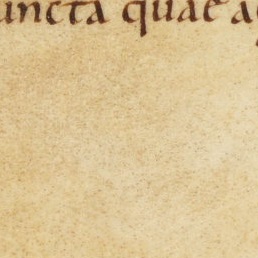 uncta quae a